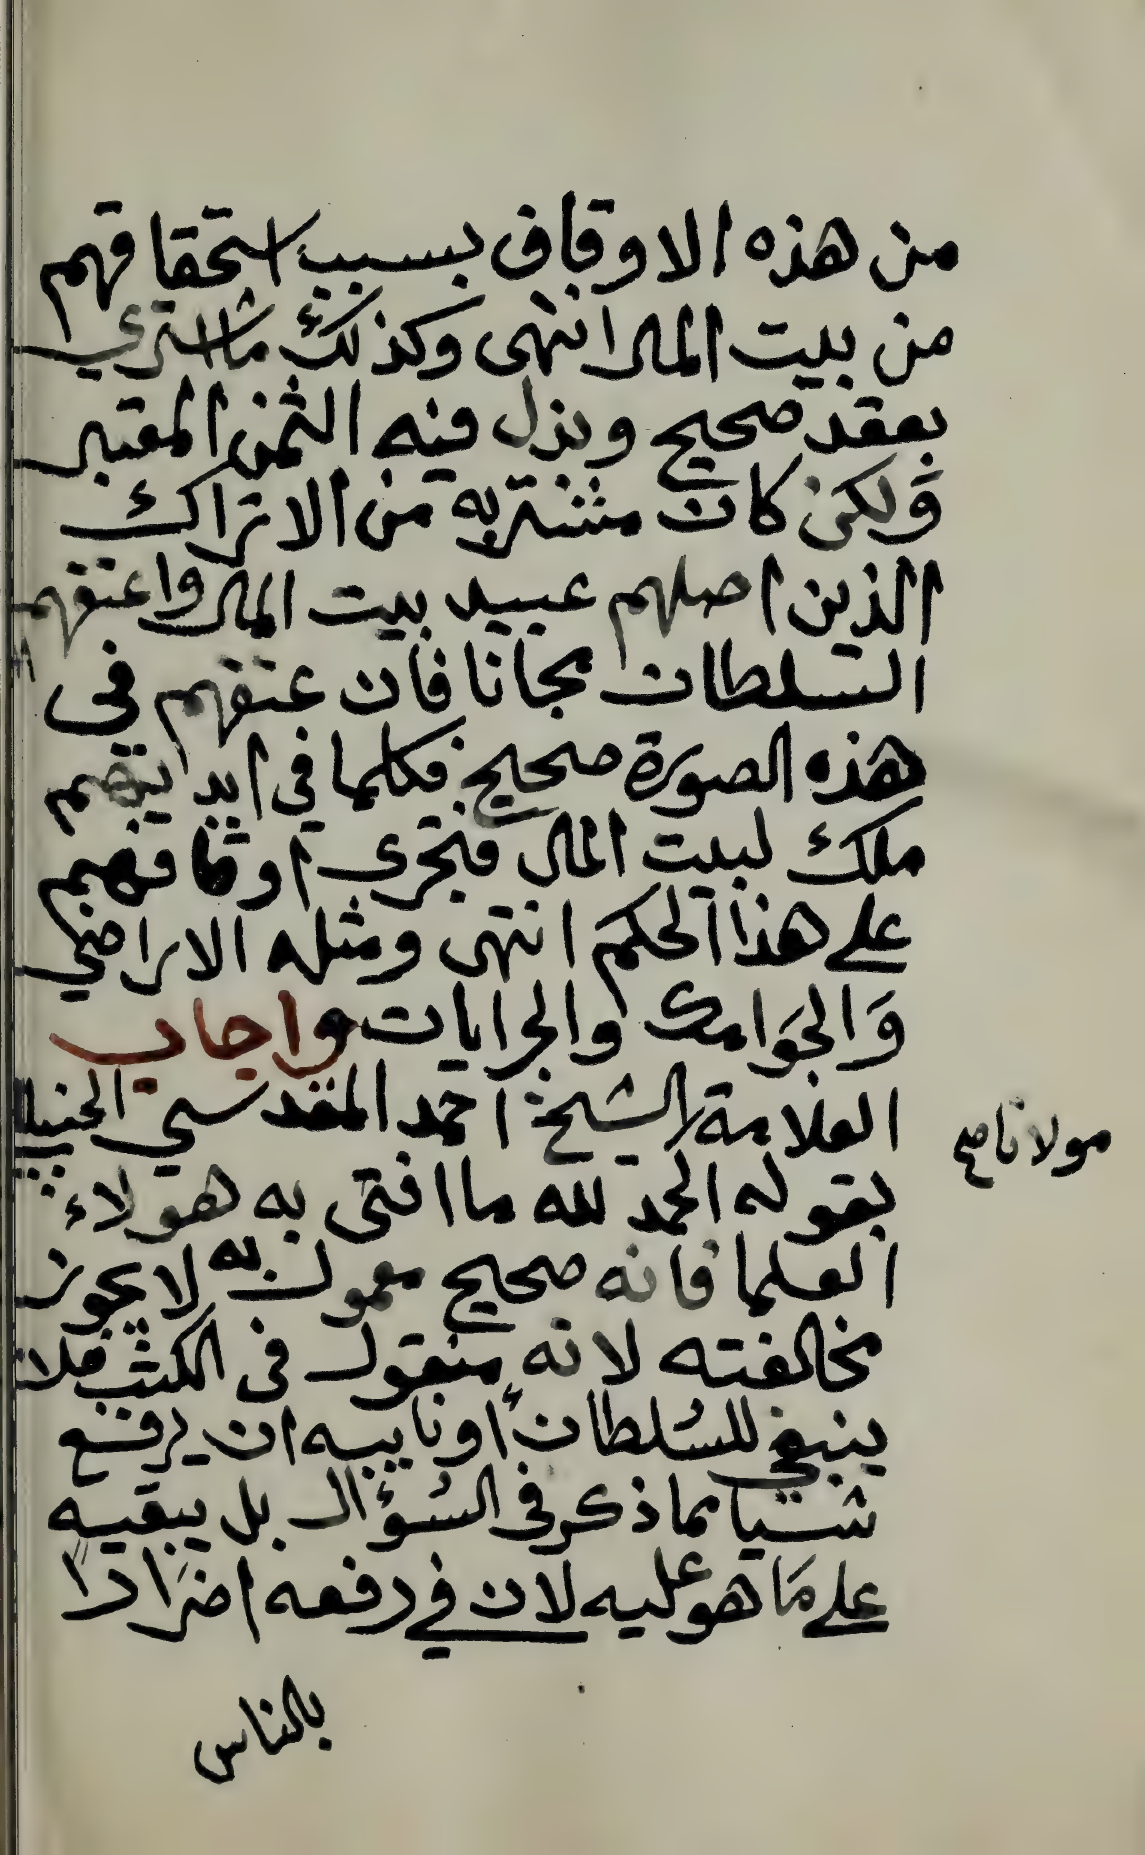 من هذه الاوقاف بسبب استحقاقهم
من بيت المال انتهى وكذلك ما اشتري
بعقد صحيح وبذل فيه الثمن المعتبر
ولكن كان مشتريه من الاتراك
الذين اصلهم عبيد بيت المال واعتقهم
السلطان مجانا فان عتقهم فى
هذه الصورة صحيح فكلما في ايديهم
ملك لبيت المال فتجرى اوقافهم
على هذا الحكم انتهى ومثله الاراضي
والجوامك والجرايات واجاب
العلامة الشيخ احمد المقدسي الحنبلي
مولانا صح
بقوله الحمد لله ما افتى به هولاء
العلما فانه صحيح معمول به لا يجوز
مخالفته لانه منقول فى الكتب فلا
ينبغي للسلطان او نايبه ان يرفع
شيا مما ذكر فى السؤال بل يبقيه
على ما هو عليه لان في رفعه اضرارا
بالناس